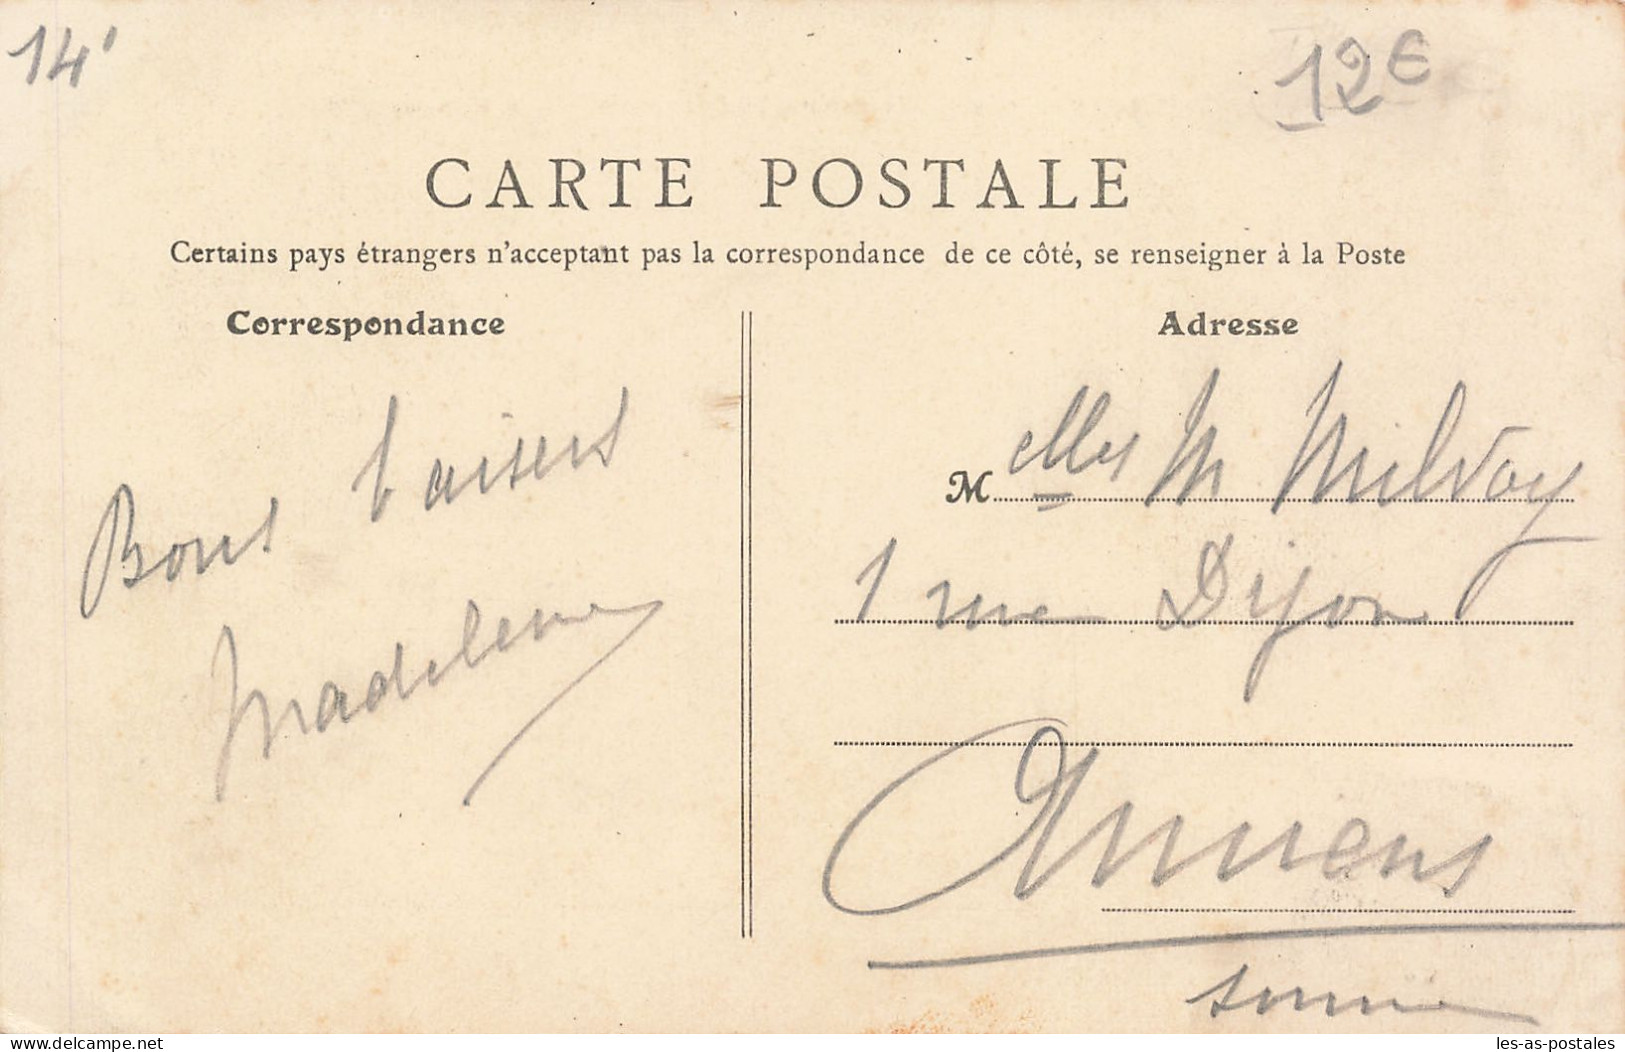 14'
12€
CARTE POSTALE
Certains pays étrangers n'acceptant pas la correspondance de ce côté, se renseigner à la Poste
Correspondance
Adresse
Bons baisers
Madeleine
M elles M Milvoy
1 rue Dijon
Amiens
Somme
delcampe.net
les-as-postales